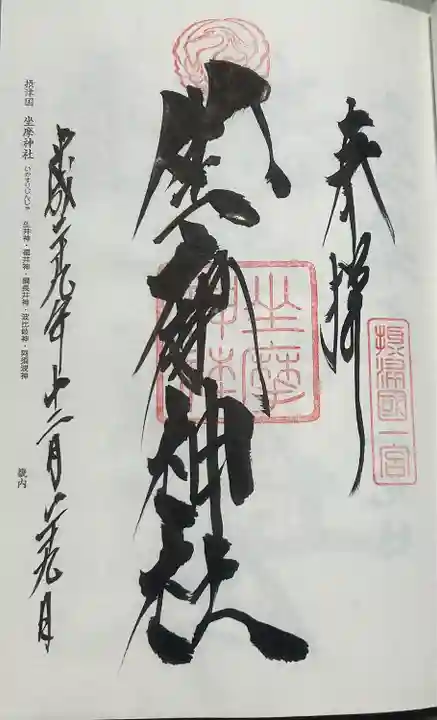 奉拝
摂津國一宮
坐摩神社
坐摩神社
平成二十九年十二月二十九日
摂津国 坐摩神社 いかすりじんじゃ 生井神・福井神・綱長井神・波比祇神・阿須波神
畿内